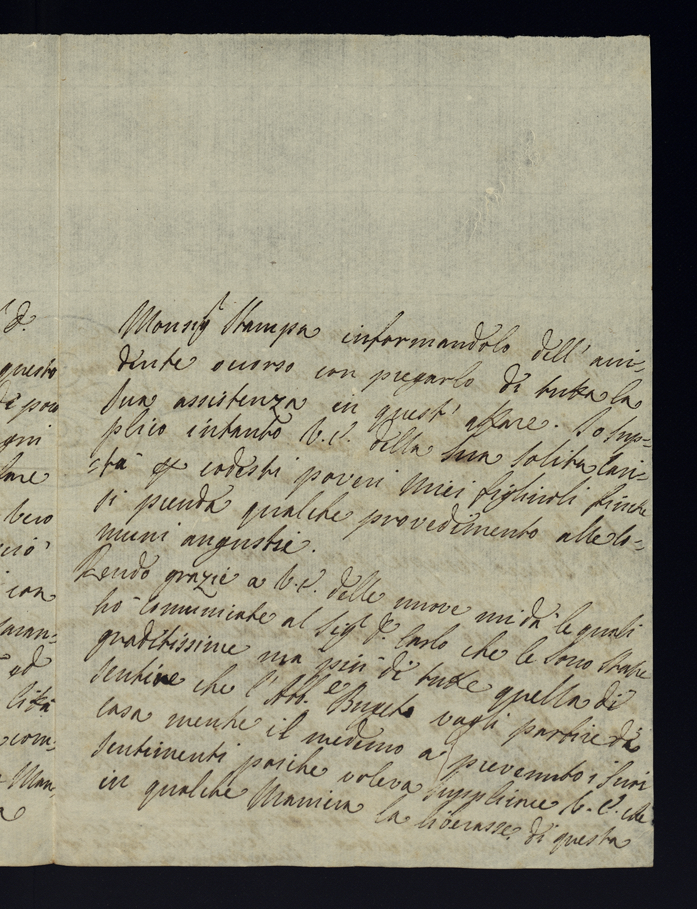 Monsig.r Stampa informandolo dell' acci-
dente ocorso con pregarlo di tutta la
sua assistenza in quest' affare. Io sup-
plico intanto V.E. della sua solita Cari-
tà p codesti poveri miei figliuoli finche
si prenda qualche provedimento alle co-
muni angustie.
Rendo grazie a V.E. delle nuove mi dà le quali
hò comunicate al Sig.r D. Carlo che le sono state
graditissime ma più di tutte quella di
sentire che l' Abb.e vogli partire dà
casa mentre il medemo à prevenuto i suoi
sentimenti poiche voleva supplicare V.E. che
in qualche Maniera la liberasse di questa
questo
di poco
ogni
fare
vero
con
ed
com-
Man-